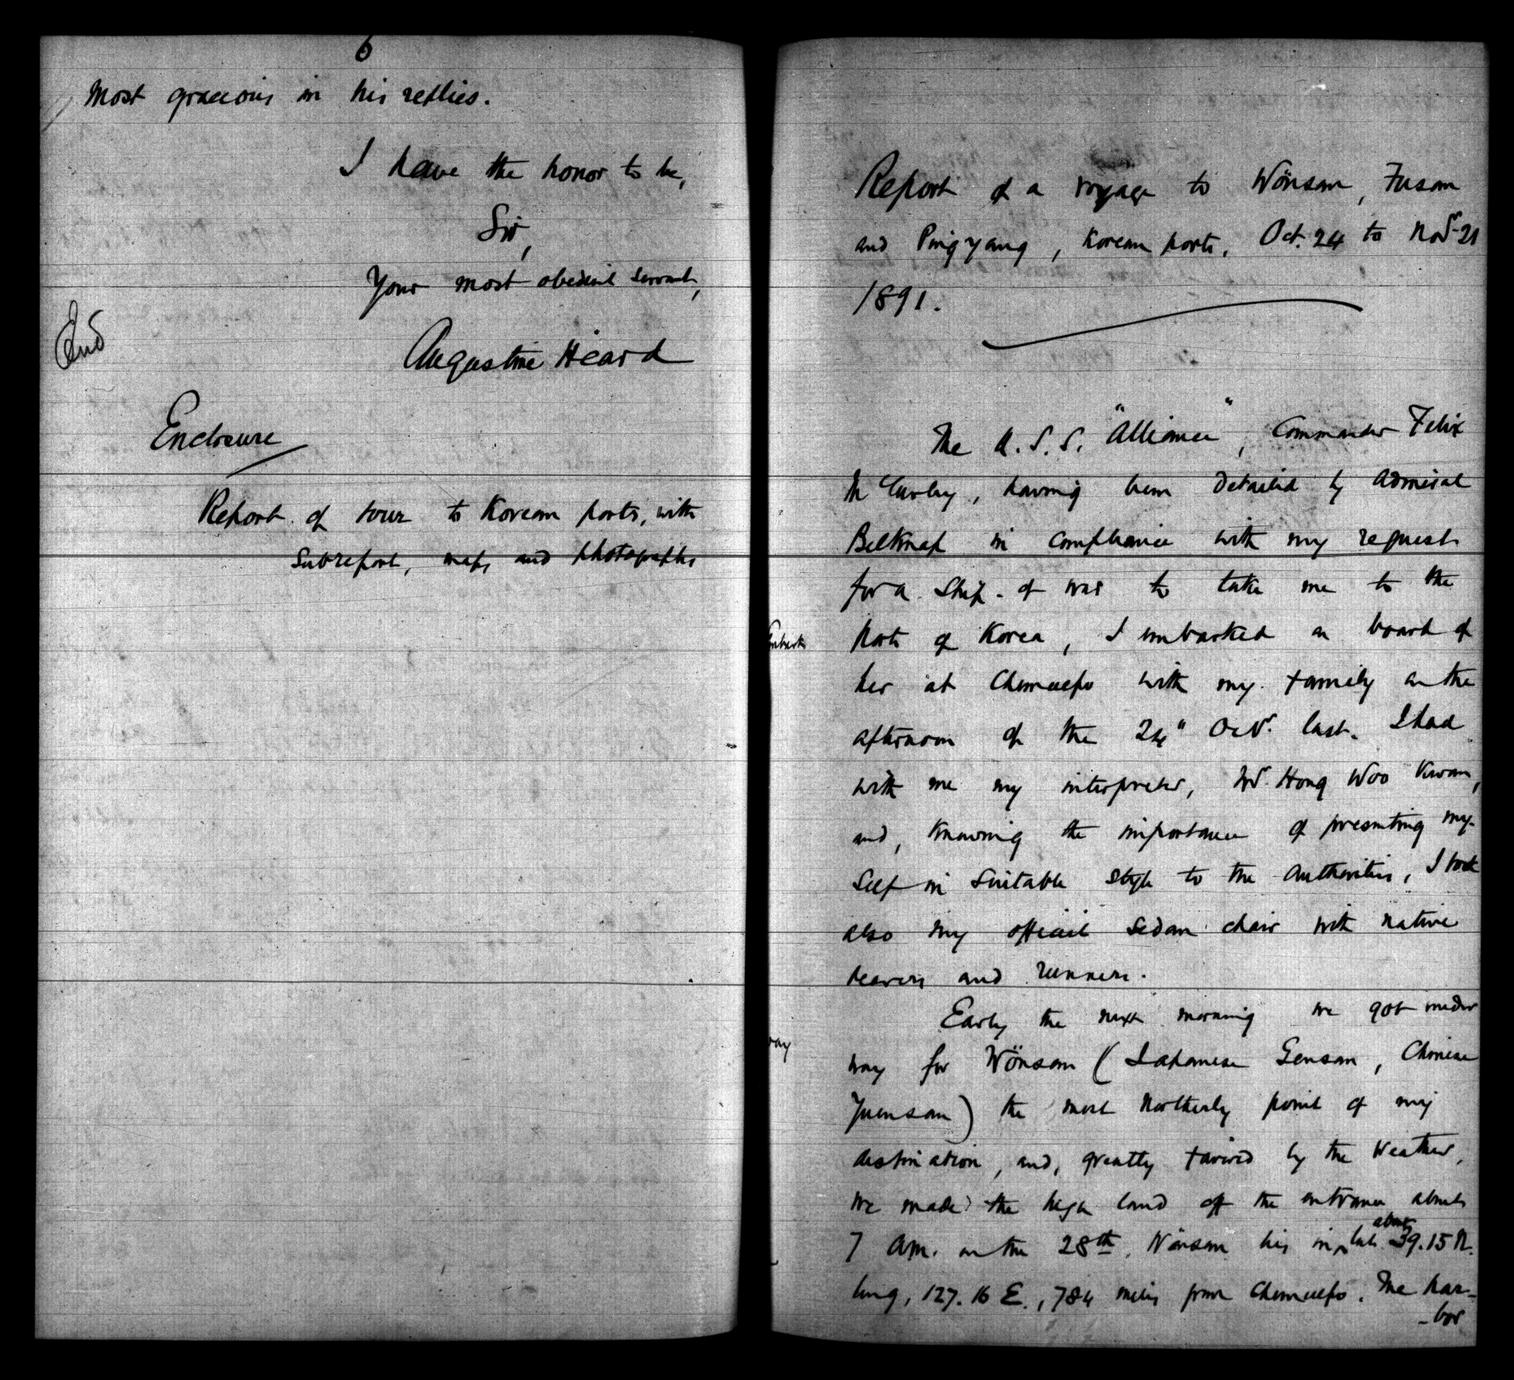 6
Most gracious in his replies.
I have the honor to be,
Sir,
Your most obedient servant,
Augustine Heard
End
Enclosure
Report of tour to Korean ports, with
subreport, maps and photographs
Report of a voyage to Wönsan, Fusan
and Pingyang, Korean ports, Oct. 24 to Novr 21
1891.
The U.S.S. "Alliance", Commander Felix
McCurley, having been detailed by Admiral
Belknap in compliance with my request
for a ship-of war to take me to the
ports of Korea, I embarked on board of
her at Chemulpo with my family on the
afternoon of the 24" Octr. last. I had
with me my interpreter, Mr. Hong Woo Kwan,
and, knowing the importance of presenting my-
self in suitable style to the Authorities, I took
also my official sedan chair with native
bearers and runners.
Early the next morning we got under
way for Wönsan (Japanese Gensan, Chinese
Yuensan) the most Northerly point of my
destination, and, greatly favored by the weather,
we made the high land off the entrance about
7 am. on the 28th. Wönsan lies in lat. about 39.15 N.
long, 127.16 E., 784 miles from Chemulpo. The har-
-bor